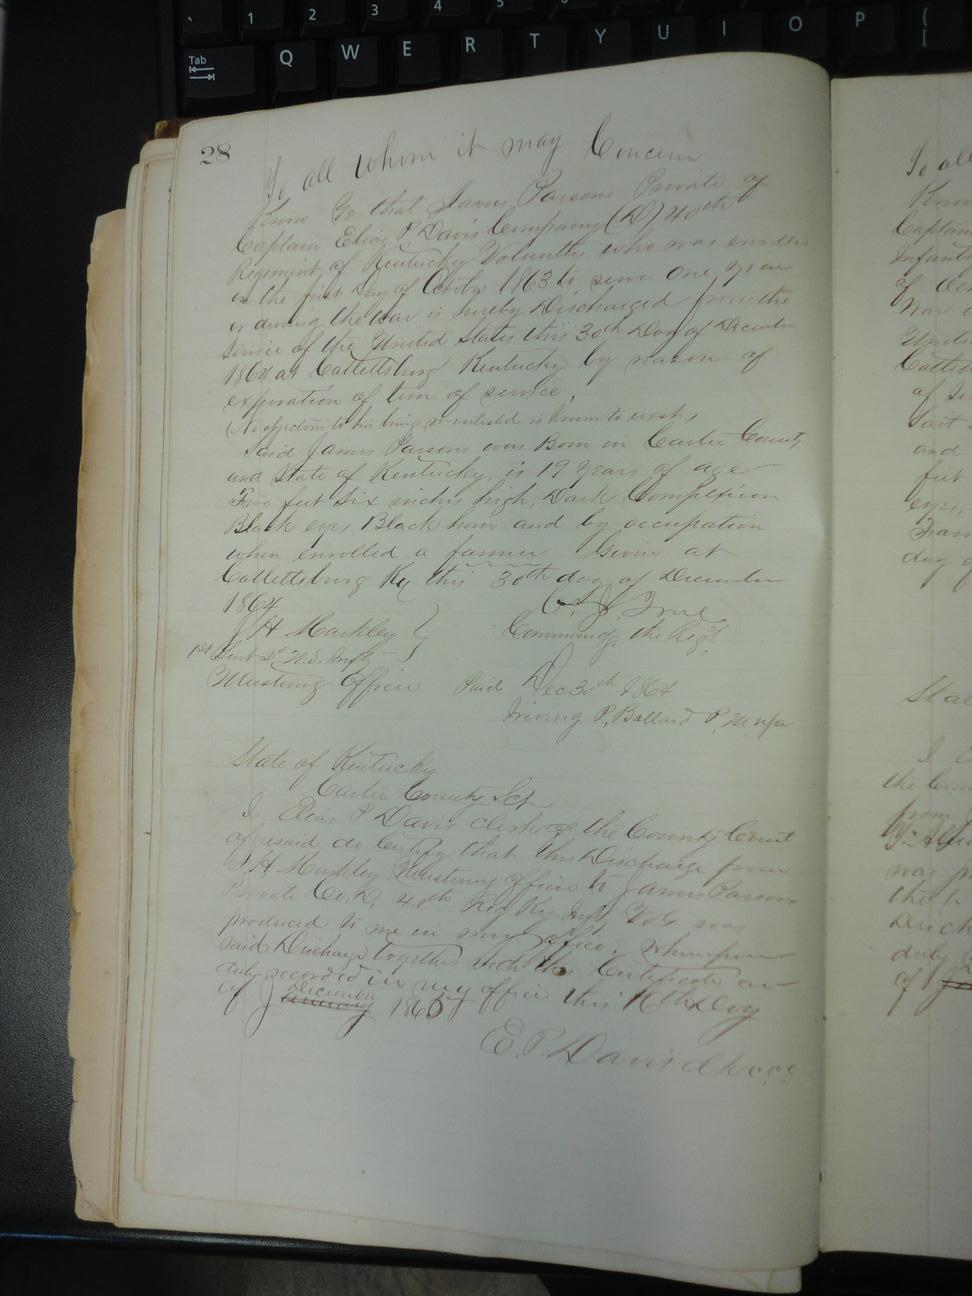 ` 1 2 3 4
Tab Q W E R T Y U I O P { [
28
To all whom it may Concern
Know Ye that James Parsons Private of
Captain Elias P Davis Company (D) 40th
Regement of Kentucky Volunters who was enroled
on the first Day of 1863 to serve One year
or during the war is hereby Discharged from the
Service of the United States this 30th Day of December
1864 at Catlettsburg Kentucky by reason of
expiration of time of service,
(No objection to his being re-enlisted is known to exist,
Said James Parsons was Born in Carter County
and State of Kentucky, is 19 years of age
Five feet Six inches high, Dark Complexion
Black eyes, Black hair and by occupation
when enrolled a farmer Given at
Catlettsburg Ky this 30th day of December
1864
J H Markley
1st Lieut 2d U.S. Infty
Mustering Officer
C. J. True
Commandg the Regt
Paid Dec 30th 1864
Irving P, Ballard P, M
State of Kentucky
Carter County Sct
I, Elias P Davis clerk of the County Court
aforesaid do Certify that this Discharge from
J H Markley Mustering Officer to James Parsons
Private Co, D, 40th Reg Ky Infty was
produced to me in my office, whereupon
said Discharge together with this Certificate are
duly recorded in my office this 16th Day
of January December 1865
E. P. Davis clk ccc